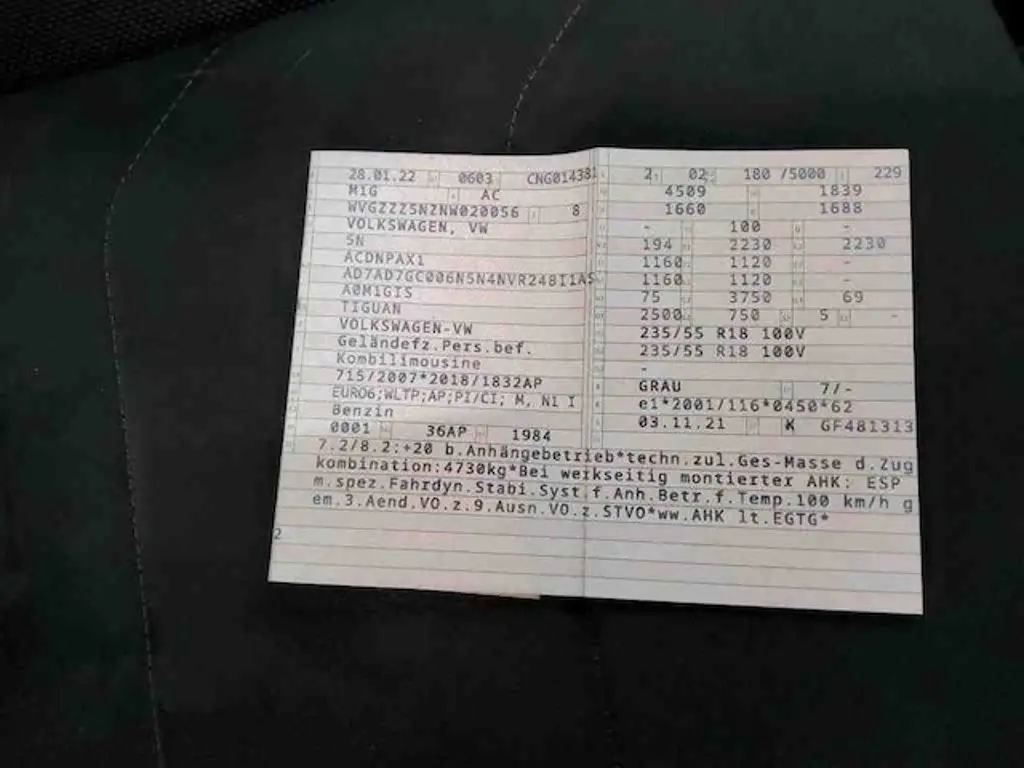 28.01.22 0603 CNG014381 2 02 180 /5000 229
M1G AC 4509 1839
WVGZZZ5NZNW020056 8 1660 1688
VOLKSWAGEN, VW - 100 -
5N 194 2230 2230
ACDNPAX1 1160 1120 -
AD7AD7GC006N5N4NVR248I1A5 1160 1120 -
A0M1GIS 75 3750 69
TIGUAN 2500 750 5 -
VOLKSWAGEN-VW 235/55 R18 100V
Geländefz.Pers.bef. 235/55 R18 100V
Kombilimousine -
715/2007*2018/1832AP GRAU 7/-
EURO6;WLTP;AP;PI/CI; M, N1 I e1*2001/116*0450*62
Benzin 03.11.21 K GF481313
0001 36AP 1984
7.2/8.2:+20 b.Anhängebetrieb*techn.zul.Ges-Masse d.Zug
kombination:4730kg*Bei werkseitig montierter AHK: ESP
m.spez.Fahrdyn.Stabi.Syst.f.Anh.Betr.f.Temp.100 km/h g
em.3.Aend.VO.z.9.Ausn.VO.z.STVO*ww.AHK lt.EGTG*
2